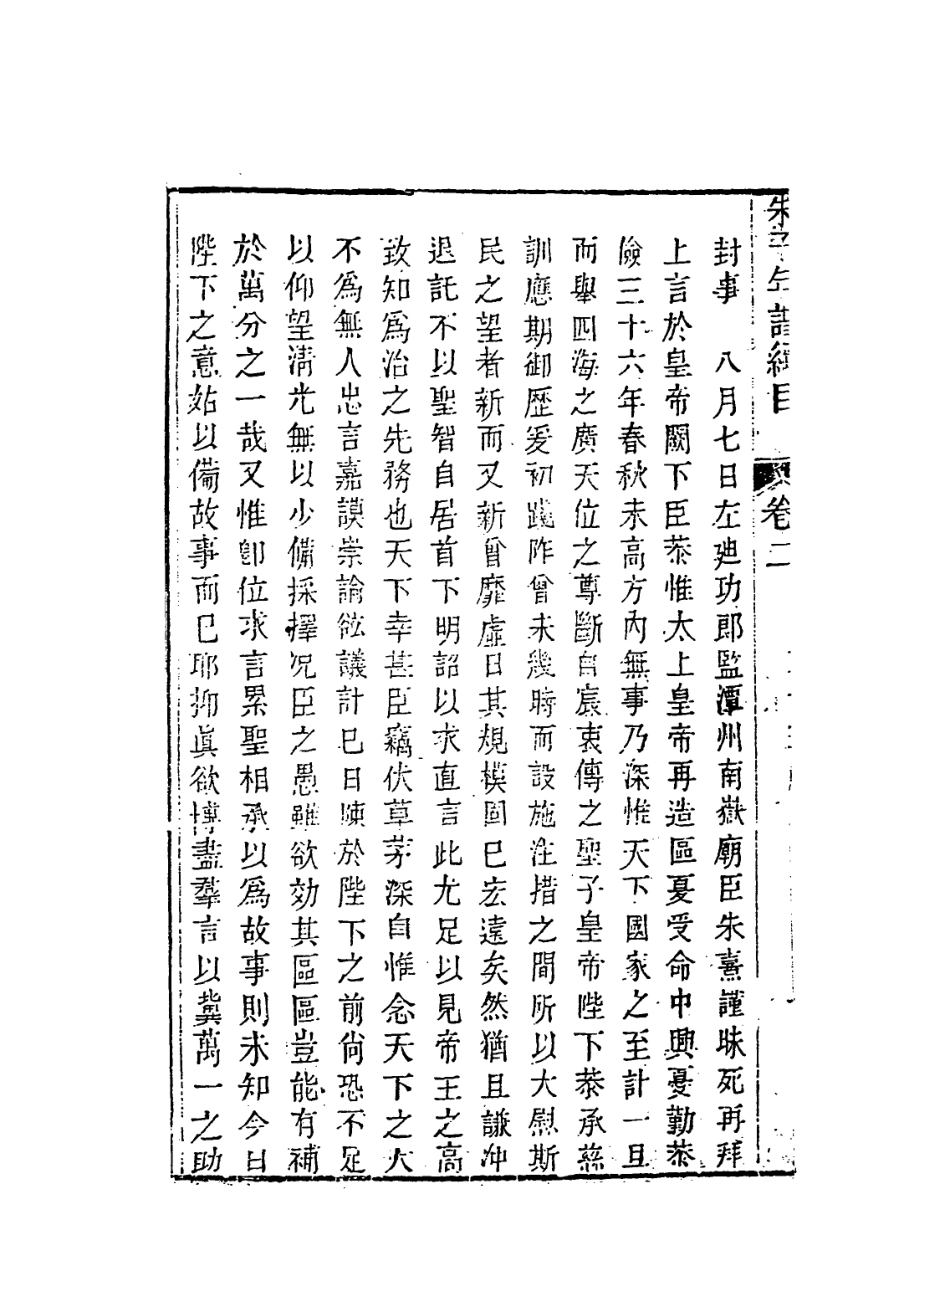 朱子年譜綱目 卷二
封事　八月七日左廸功郎監潭州南嶽廟臣朱熹謹昧死再拜
上言於皇帝闕下臣恭惟太上皇帝再造區夏受命中興憂勤恭
儉三十六年春秋未高方內無事乃深惟天下國家之至計一旦
而舉四海之廣天位之尊斷自宸衷傳之聖子皇帝陛下恭承慈
訓應期御歷爰初踐阼曾未幾時而設施注措之間所以大慰斯
民之望者新而又新曾靡虛日其規模固已宏遠矣然猶且謙沖
退託不以聖智自居首下明詔以求直言此尤足以見帝王之高
致知爲治之先務也天下幸甚臣竊伏草茅深自惟念天下之大
不爲無人忠言嘉謨崇論竑議計已日陳於陛下之前尙恐不足
以仰望淸光無以少備採擇况臣之愚雖欲効其區區豈能有補
於萬分之一哉又惟卽位求言累聖相承以爲故事則未知今日
陛下之意姑以備故事而已耶抑眞欲博盡羣言以冀萬一之助